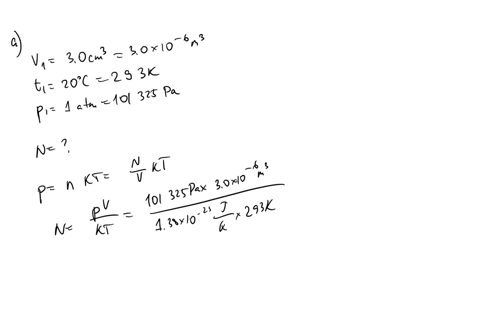 a)
V₁ = 3.0 cm³ = 3.0 × 10⁻⁶ m³
t₁ = 20°C = 293K
p₁ = 1 atm = 101 325 Pa
N = ?
p = n KT = N/V KT
N = pV/KT = (101 325 Pa × 3.0 × 10⁻⁶ m³)/(1.38 × 10⁻²³ J/K × 293K)